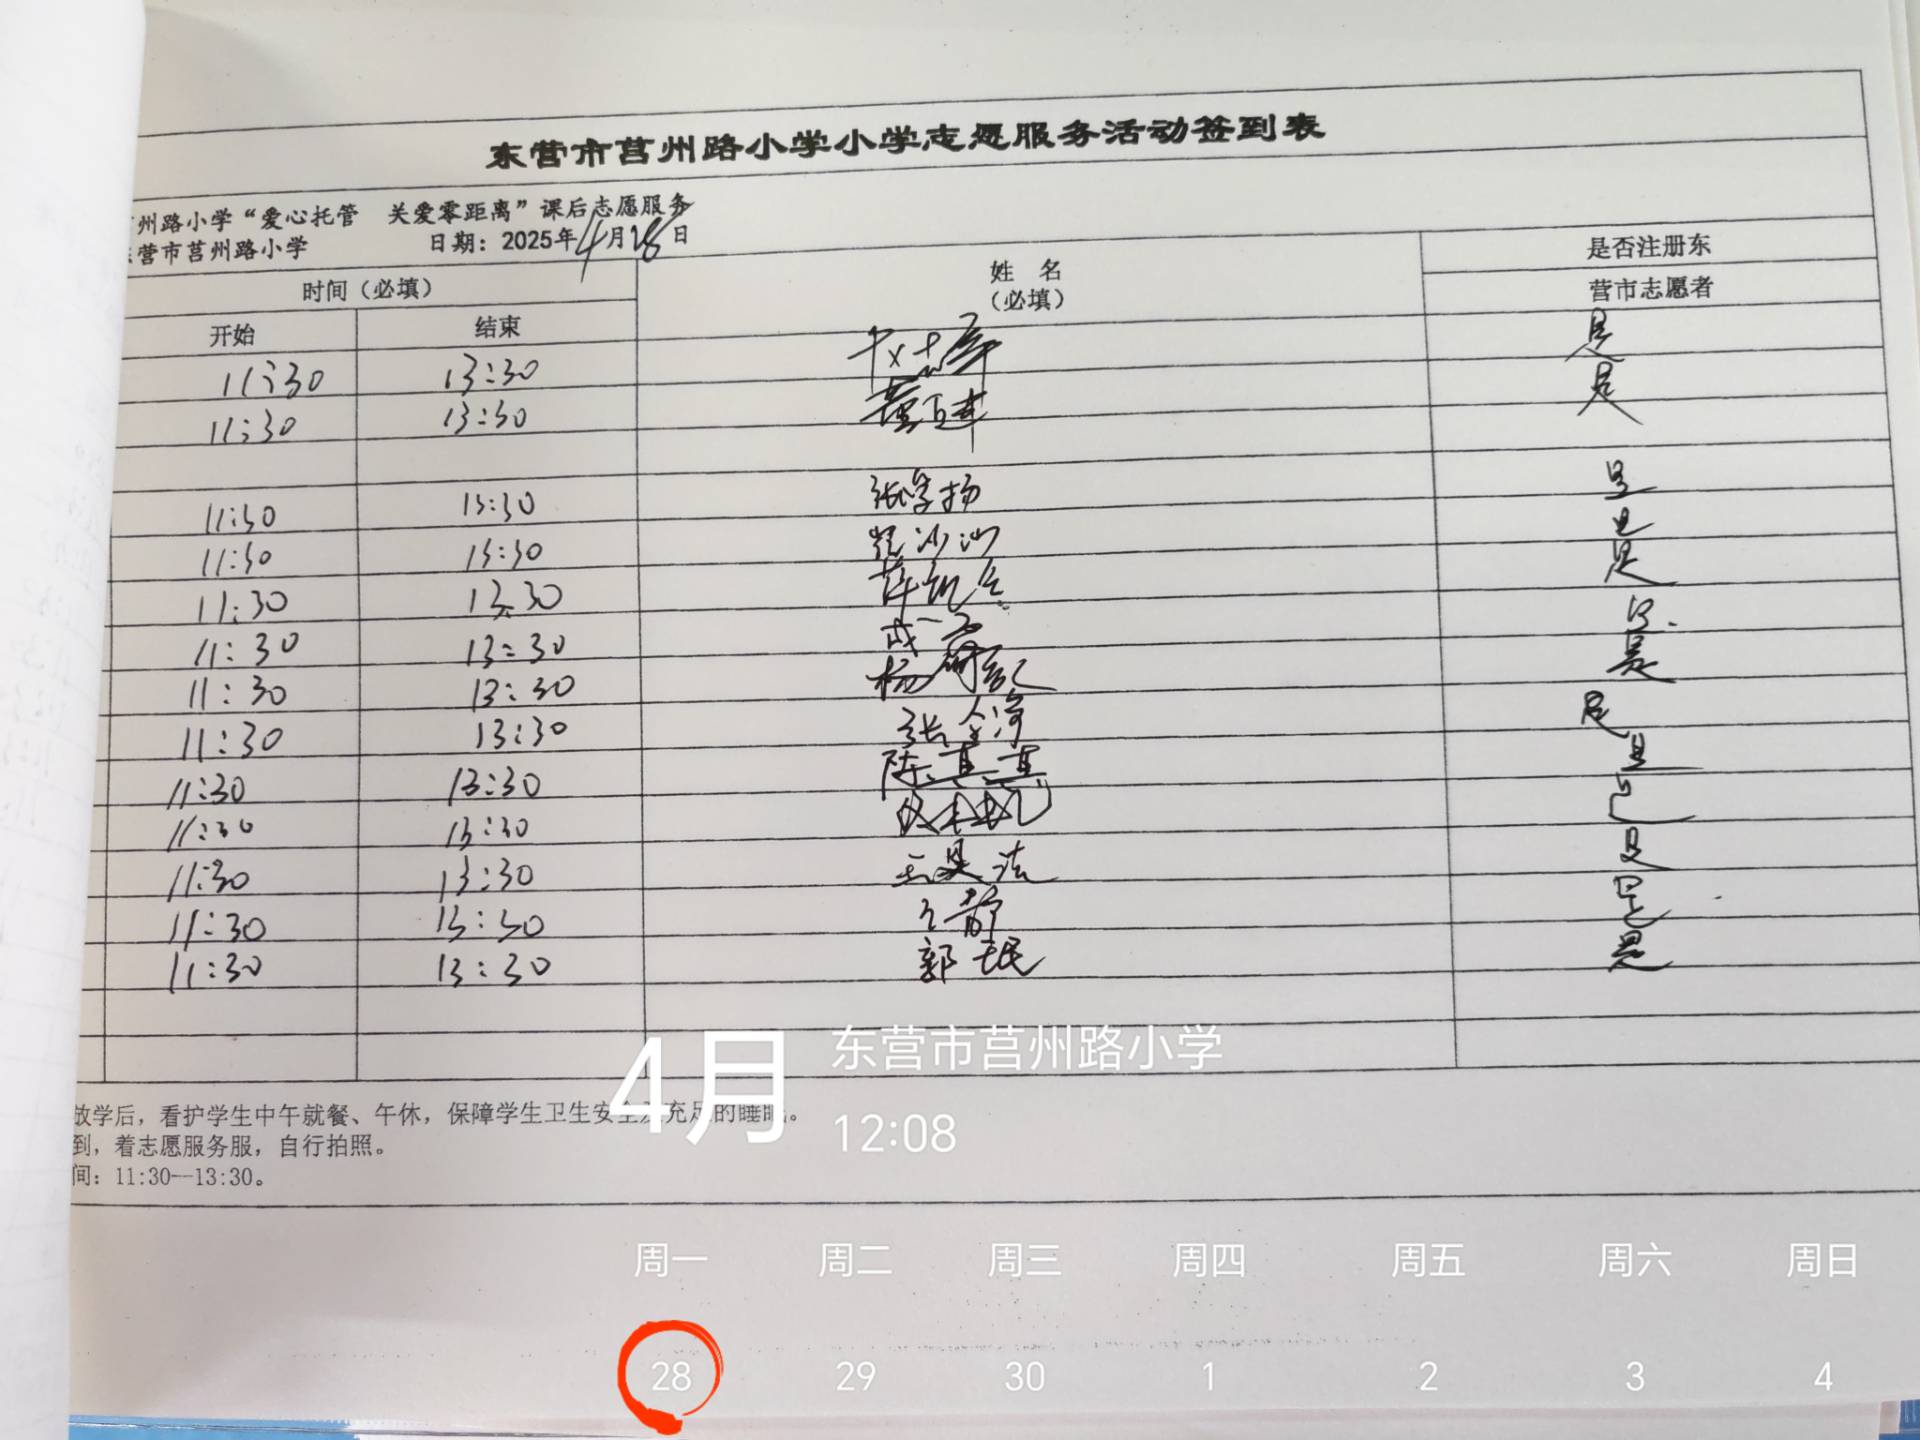 东营市莒州路小学小学志愿服务活动签到表
州路小学“爱心托管 关爱零距离”课后志愿服务
营市莒州路小学 日期：2025年4月28日
时间（必填） 姓 名（必填） 是否注册东营市志愿者
开始 结束
11:30 13:30 是
11:30 13:30 是
11:30 13:30 张学扬 是
11:30 13:30 是
11:30 13:30 是
11:30 13:30
11:30 13:30 杨 是
11:30 13:30 张 是
11:30 13:30 陈真真 是
11:30 13:30
11:30 13:30 王 是
11:30 13:30 王静 是
11:30 13:30 郭 是
放学后，看护学生中午就餐、午休，保障学生卫生安全及充足的睡眠。
到，着志愿服务服，自行拍照。
间：11:30—13:30。
4月
东营市莒州路小学
12:08
周一 周二 周三 周四 周五 周六 周日
28 29 30 1 2 3 4